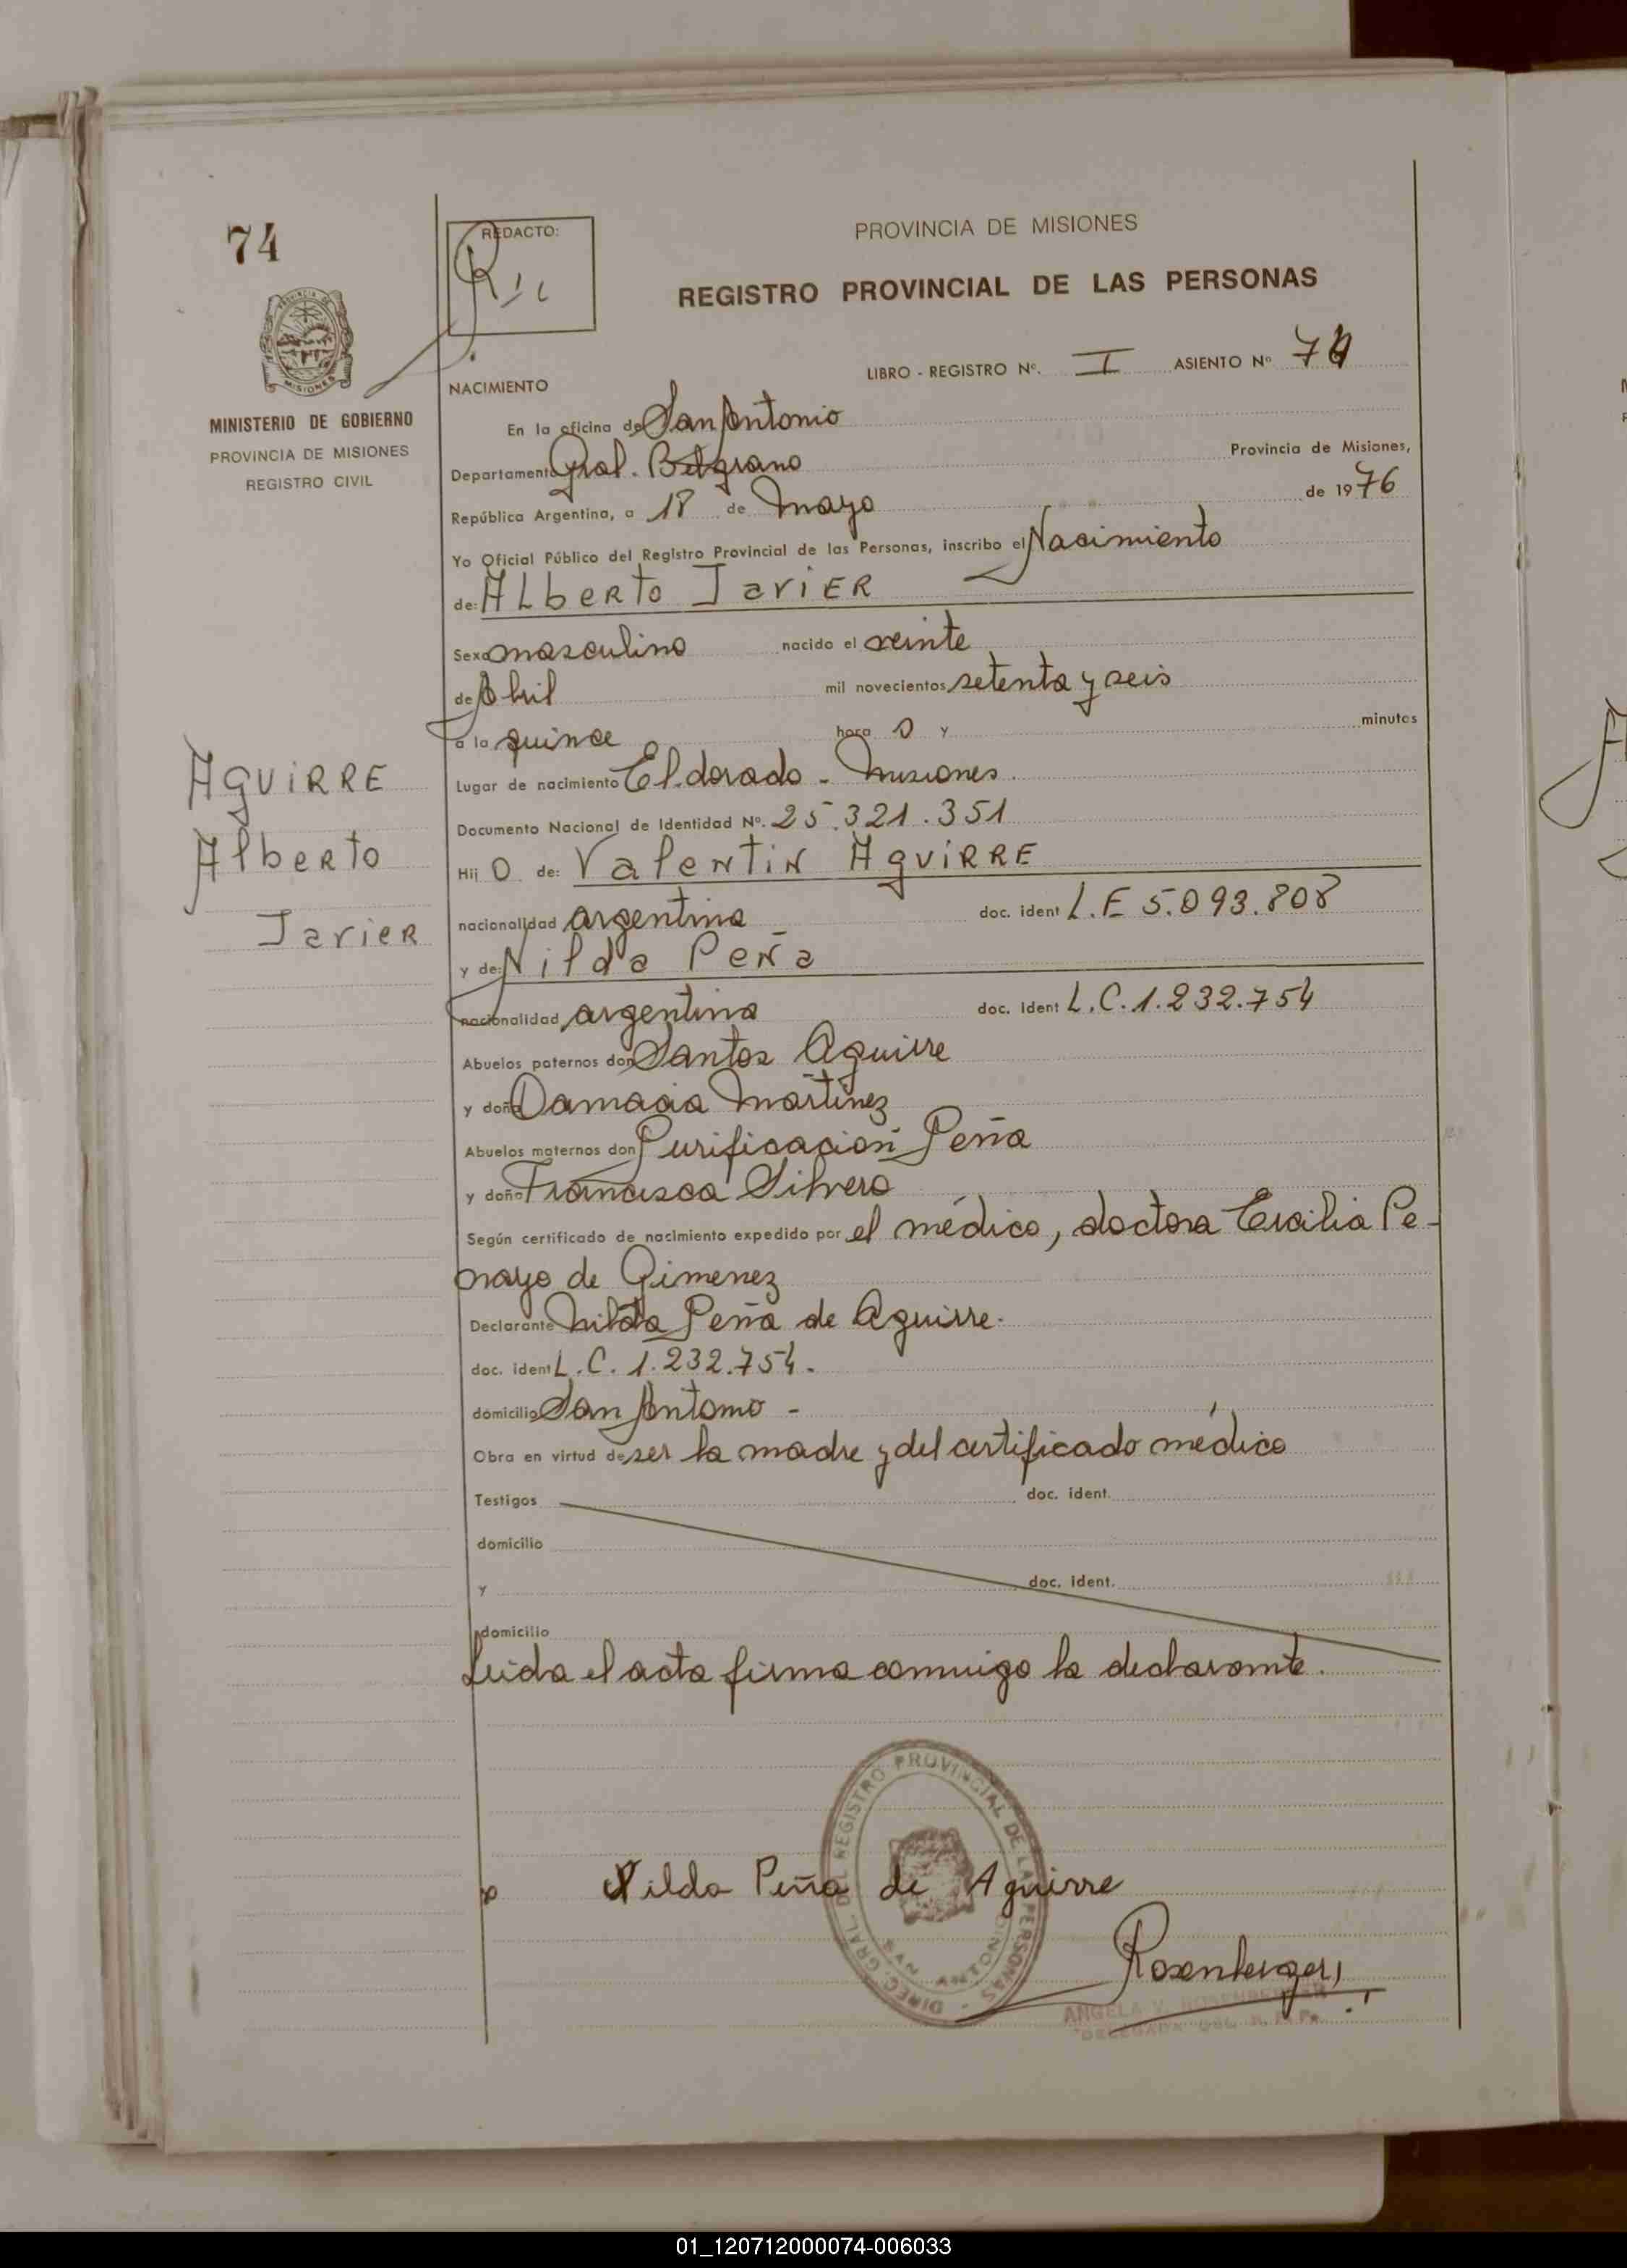 74
REDACTO:
PROVINCIA DE MISIONES
REGISTRO PROVINCIAL DE LAS PERSONAS
LIBRO - REGISTRO Nº. I ASIENTO Nº 74
PROVINCIA DE
MISIONES
MINISTERIO DE GOBIERNO
PROVINCIA DE MISIONES
REGISTRO CIVIL
NACIMIENTO
En la oficina de San Antonio
Departamento Gral. Belgrano Provincia de Misiones,
República Argentina, a 18 de Mayo de 1976
Yo Oficial Público del Registro Provincial de las Personas, inscribo el Nacimiento
de: ALberto JaviER
Sexo masculino nacido el veinte
de Abril mil novecientos setenta y seis
a la quince hora 0 y minutos
Lugar de nacimiento Eldorado - Misiones.
Documento Nacional de Identidad Nº. 25.321.351
Hij O de: Valentin AguiRRE
nacionalidad argentina doc. ident L.E 5.093.808
y de: Nilda Peña
nacionalidad argentina doc. ident L.C.1.232.754
Abuelos paternos don Santos Aguirre
y doña Damacia Martinez
Abuelos maternos don Purificación Peña
y doña Francisca Silvero
Según certificado de nacimiento expedido por el médico, doctora Ercilia Pe-
nayo de Gimenez
Declarante Nilda Peña de Aguirre.
doc. ident L.C. 1.232.754.
domicilio San Antonio -
Obra en virtud de ser la madre y del certificado médico
Testigos doc. ident.
domicilio
y doc. ident.
domicilio
Leida el acta firma conmigo la declarante.
AguiRRE
Alberto
JavieR
DIREC. GRAL. DEL REGISTRO PROVINCIAL DE LAS PERSONAS -
SAN ANTONIO
Nilda Peña de Aguirre
Rosenberger
ANGELA V. ROSENBERGER
DELEGADA DEL R. P. P.
01_120712000074-006033